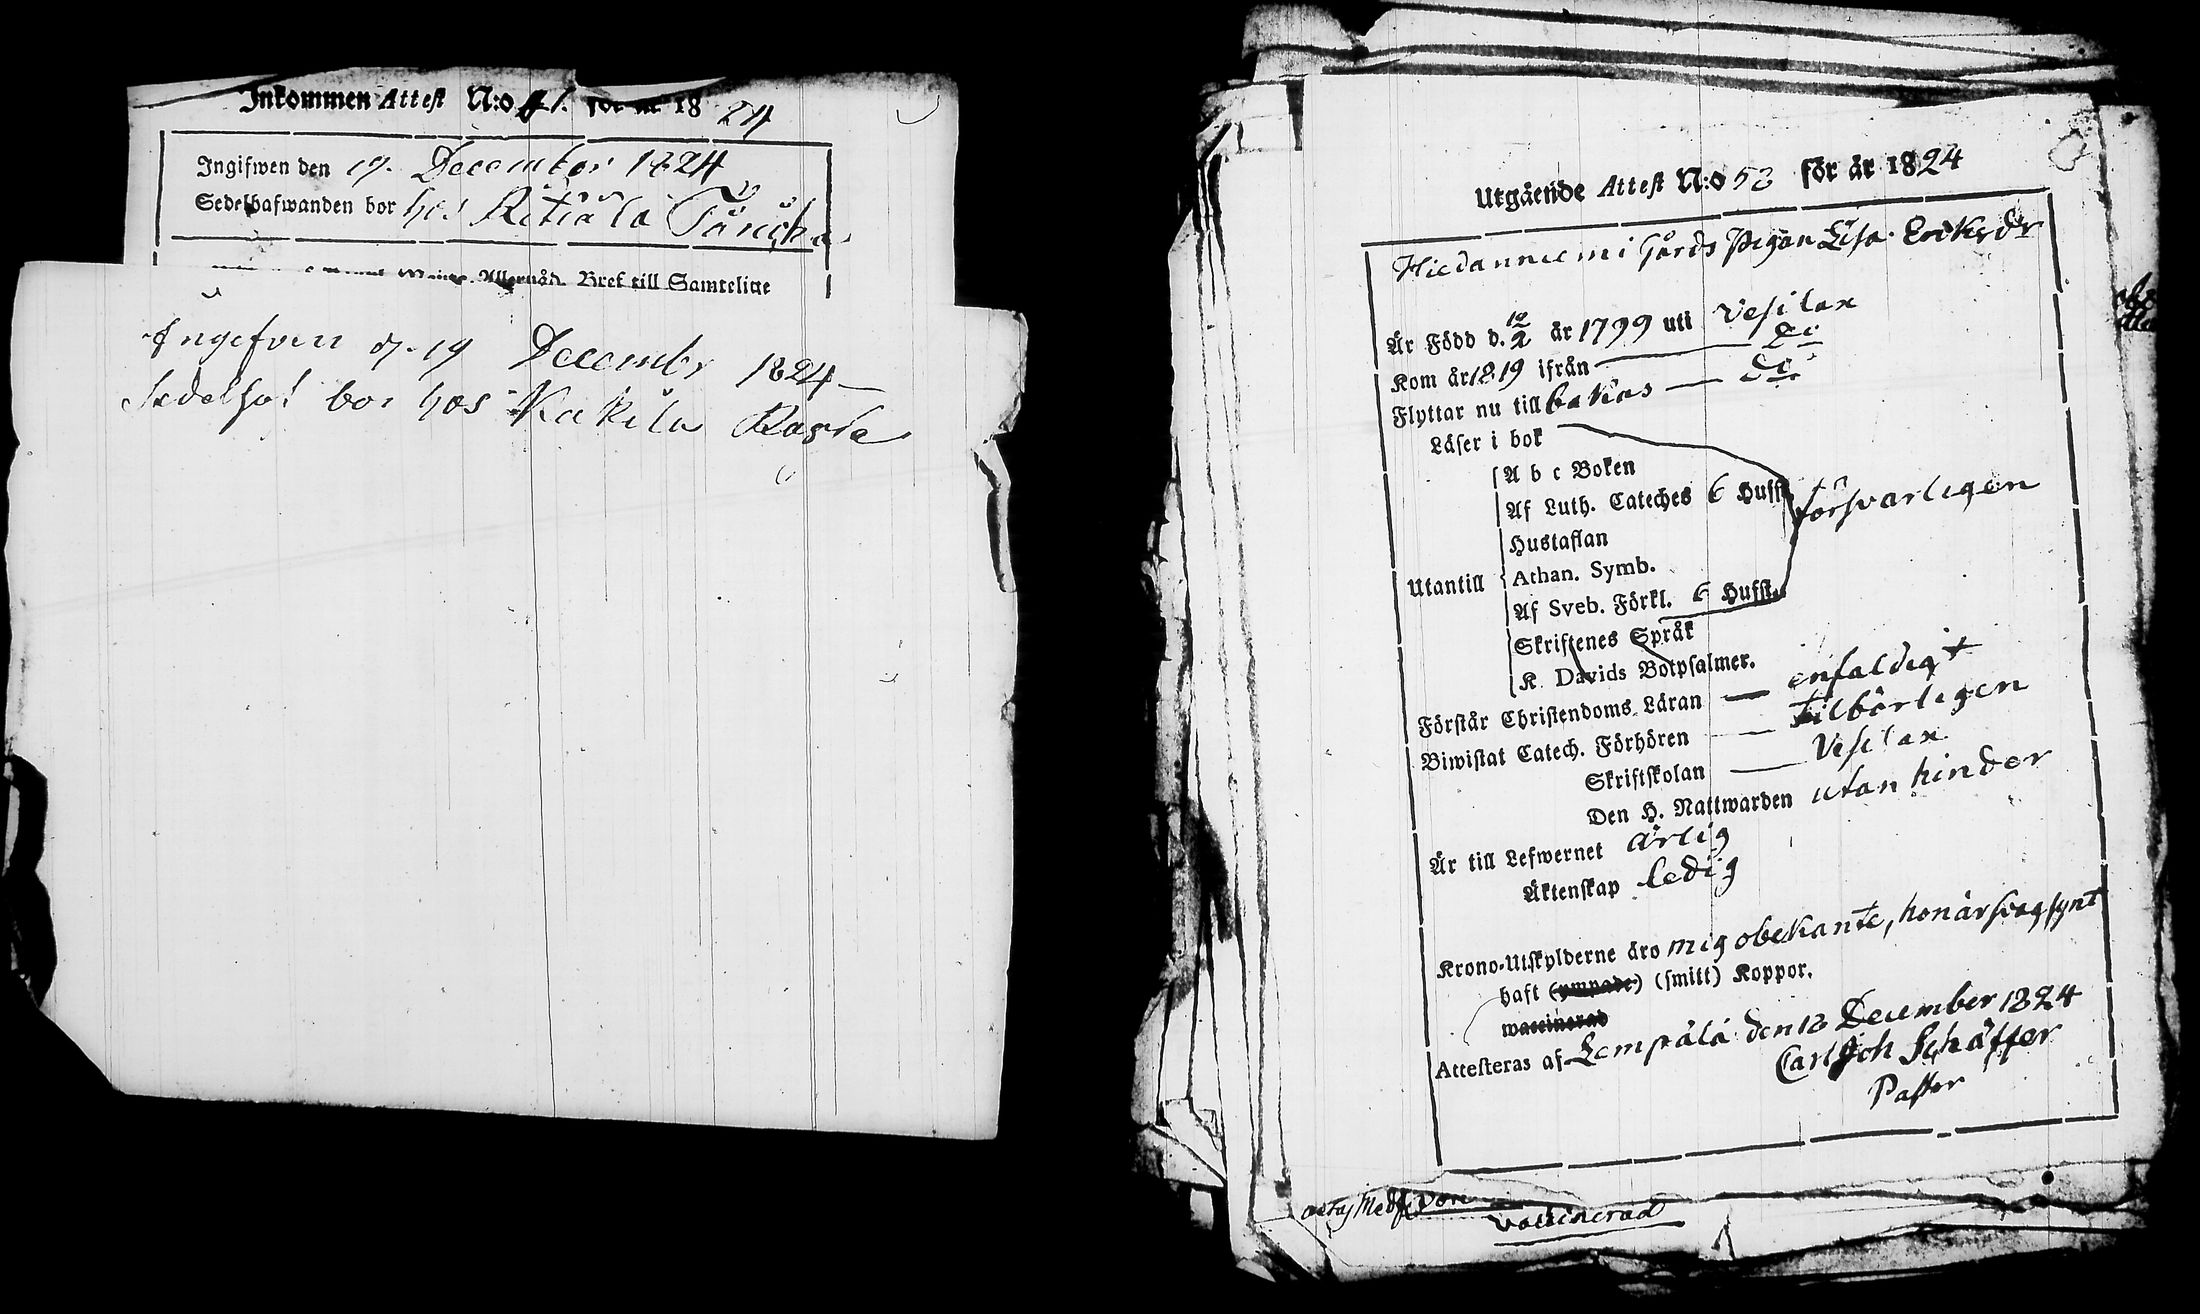 Inkommen Attest N:o 41. för år 1824
Ingifwen den 19. December 1824
Sedelhafwanden bor hos
Allernåd. Bref till Samtelige
Ingifven d. 19 Decembr 1824
Sedelhaf bor hos Kakila
Utgående Attest N:o 53 för år 1824
Hiedanniemi Gårds Pigan Lisa Eriksdr
Är Född d. 10/2 år 1799 uti Vesilax
Kom år 1819 ifrån — do
Flyttar nu till bakas — do
Läser i bok
A b c Boken
Af Luth. Cateches 6 Hufst.
försvarligen
Hustaflan
Utantill
Athan. Symb.
Af Sveb. Förkl. 6 Hufst.
Skriftenes Språk
K. Davids Botpsalmer.
Förstår Christendoms Läran — enfaldigt
Biwistat Catech. Förhören — tilbörligen
Skriftskolan — Vesilax
Den H. Nattwarden utan hinder
Är till Lefwernet ärlig
Äktenskap ledig
Krono-Utskylderne äro mig obekante, hon är svagsynt
haft (ympade) (smitt) Koppor.
waccinerad
Attesteras af Lempälä den 12 December 1824
Carl Joh Schäffer
Pastor
vaccinerad